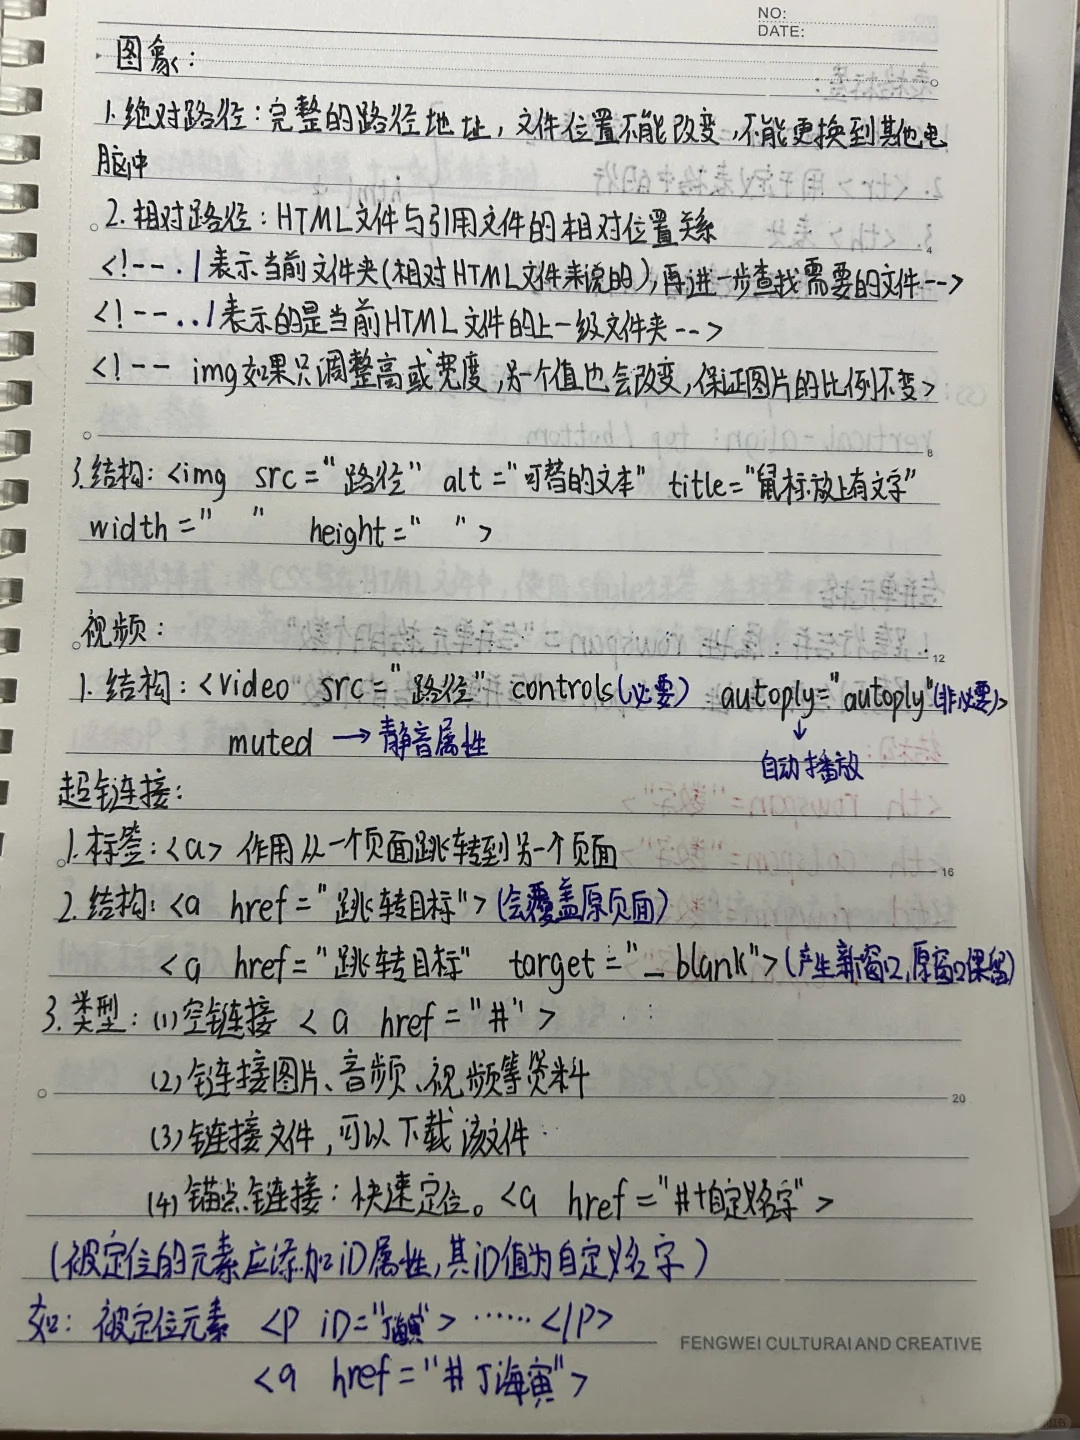 NO:
DATE:
图象:
1.绝对路径:完整的路径地址,文件位置不能改变,不能更换到其他电
脑中
2.相对路径:HTML文件与引用文件的相对位置关系
<!--./表示当前文件夹(相对HTML文件来说的),再进一步查找需要的文件-->
<!--../表示的是当前HTML文件的上一级文件夹-->
<!-- img如果只调整高或宽度,另一个值也会改变,保证图片的比例不变>
8
3.结构:<img src="路径" alt="可替的文本" title="鼠标放上有文字"
width=" " height=" ">
视频:
12
1.结构:<video src="路径" controls(必要) autoply="autoply"(非必要)>
muted →静音属性
↓
自动播放
超链接:
1.标签:<a> 作用从一个页面跳转到另一个页面
16
2.结构:<a href="跳转目标">(会覆盖原页面)
<a href="跳转目标" target="_blank">(产生新窗口,原窗口保留)
3.类型:(1)空链接 <a href="#">
(2)链接图片、音频、视频等资料
20
(3)链接文件,可以下载该文件
(4)锚点链接:快速定位。<a href="#+自定义名字">
(被定位的元素应添加iD属性,其iD值为自定义名字)
如:被定位元素 <P iD="J海寅">……</P>
<a href="#J海寅">
FENGWEI CULTURAl AND CREATIVE